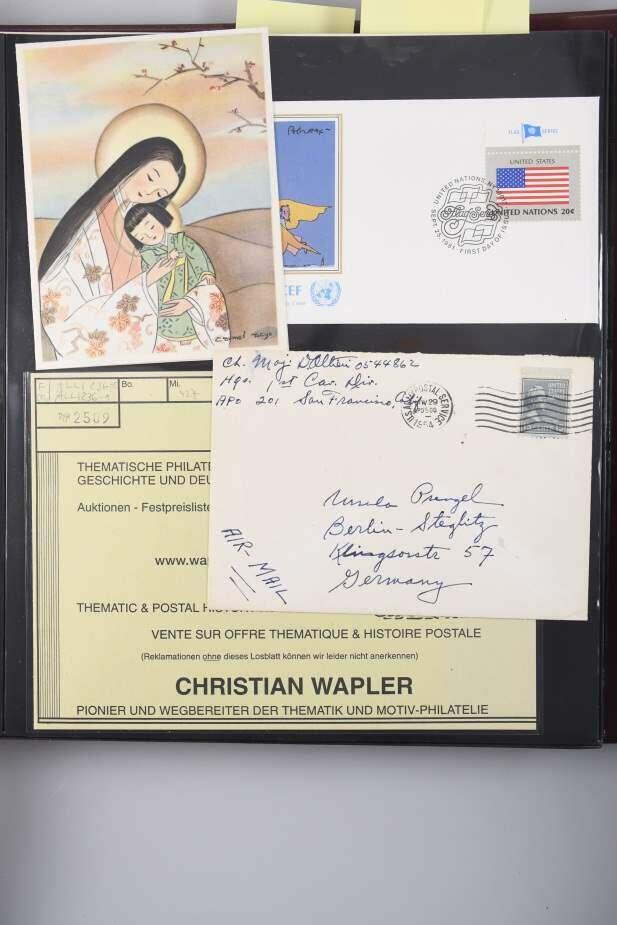 FLAG SERIES
UNITED STATES
UNITED NATIONS 20c
UNITED NATIONS, NY
SEPT. 25, 1981 · FIRST DAY OF ISSUE
Flag Series
CEF
Ch. Maj.
Hqs. 1st Cav. Div.
APO 201 San Francisco, Calif.
U.S. ARMY POSTAL SERVICE
1954
UNITED STATES
Ursula Prengel
Berlin-Steglitz
Klingsorstr 57
Germany
AIR-MAIL
Bo.
Mi.
427
2509
THEMATISCHE PHILATE
GESCHICHTE UND DEU
Auktionen - Festpreisliste
www.wa
THEMATIC & POSTAL HISTOR
VENTE SUR OFFRE THEMATIQUE & HISTOIRE POSTALE
(Reklamationen ohne dieses Losblatt können wir leider nicht anerkennen)
CHRISTIAN WAPLER
PIONIER UND WEGBEREITER DER THEMATIK UND MOTIV-PHILATELIE